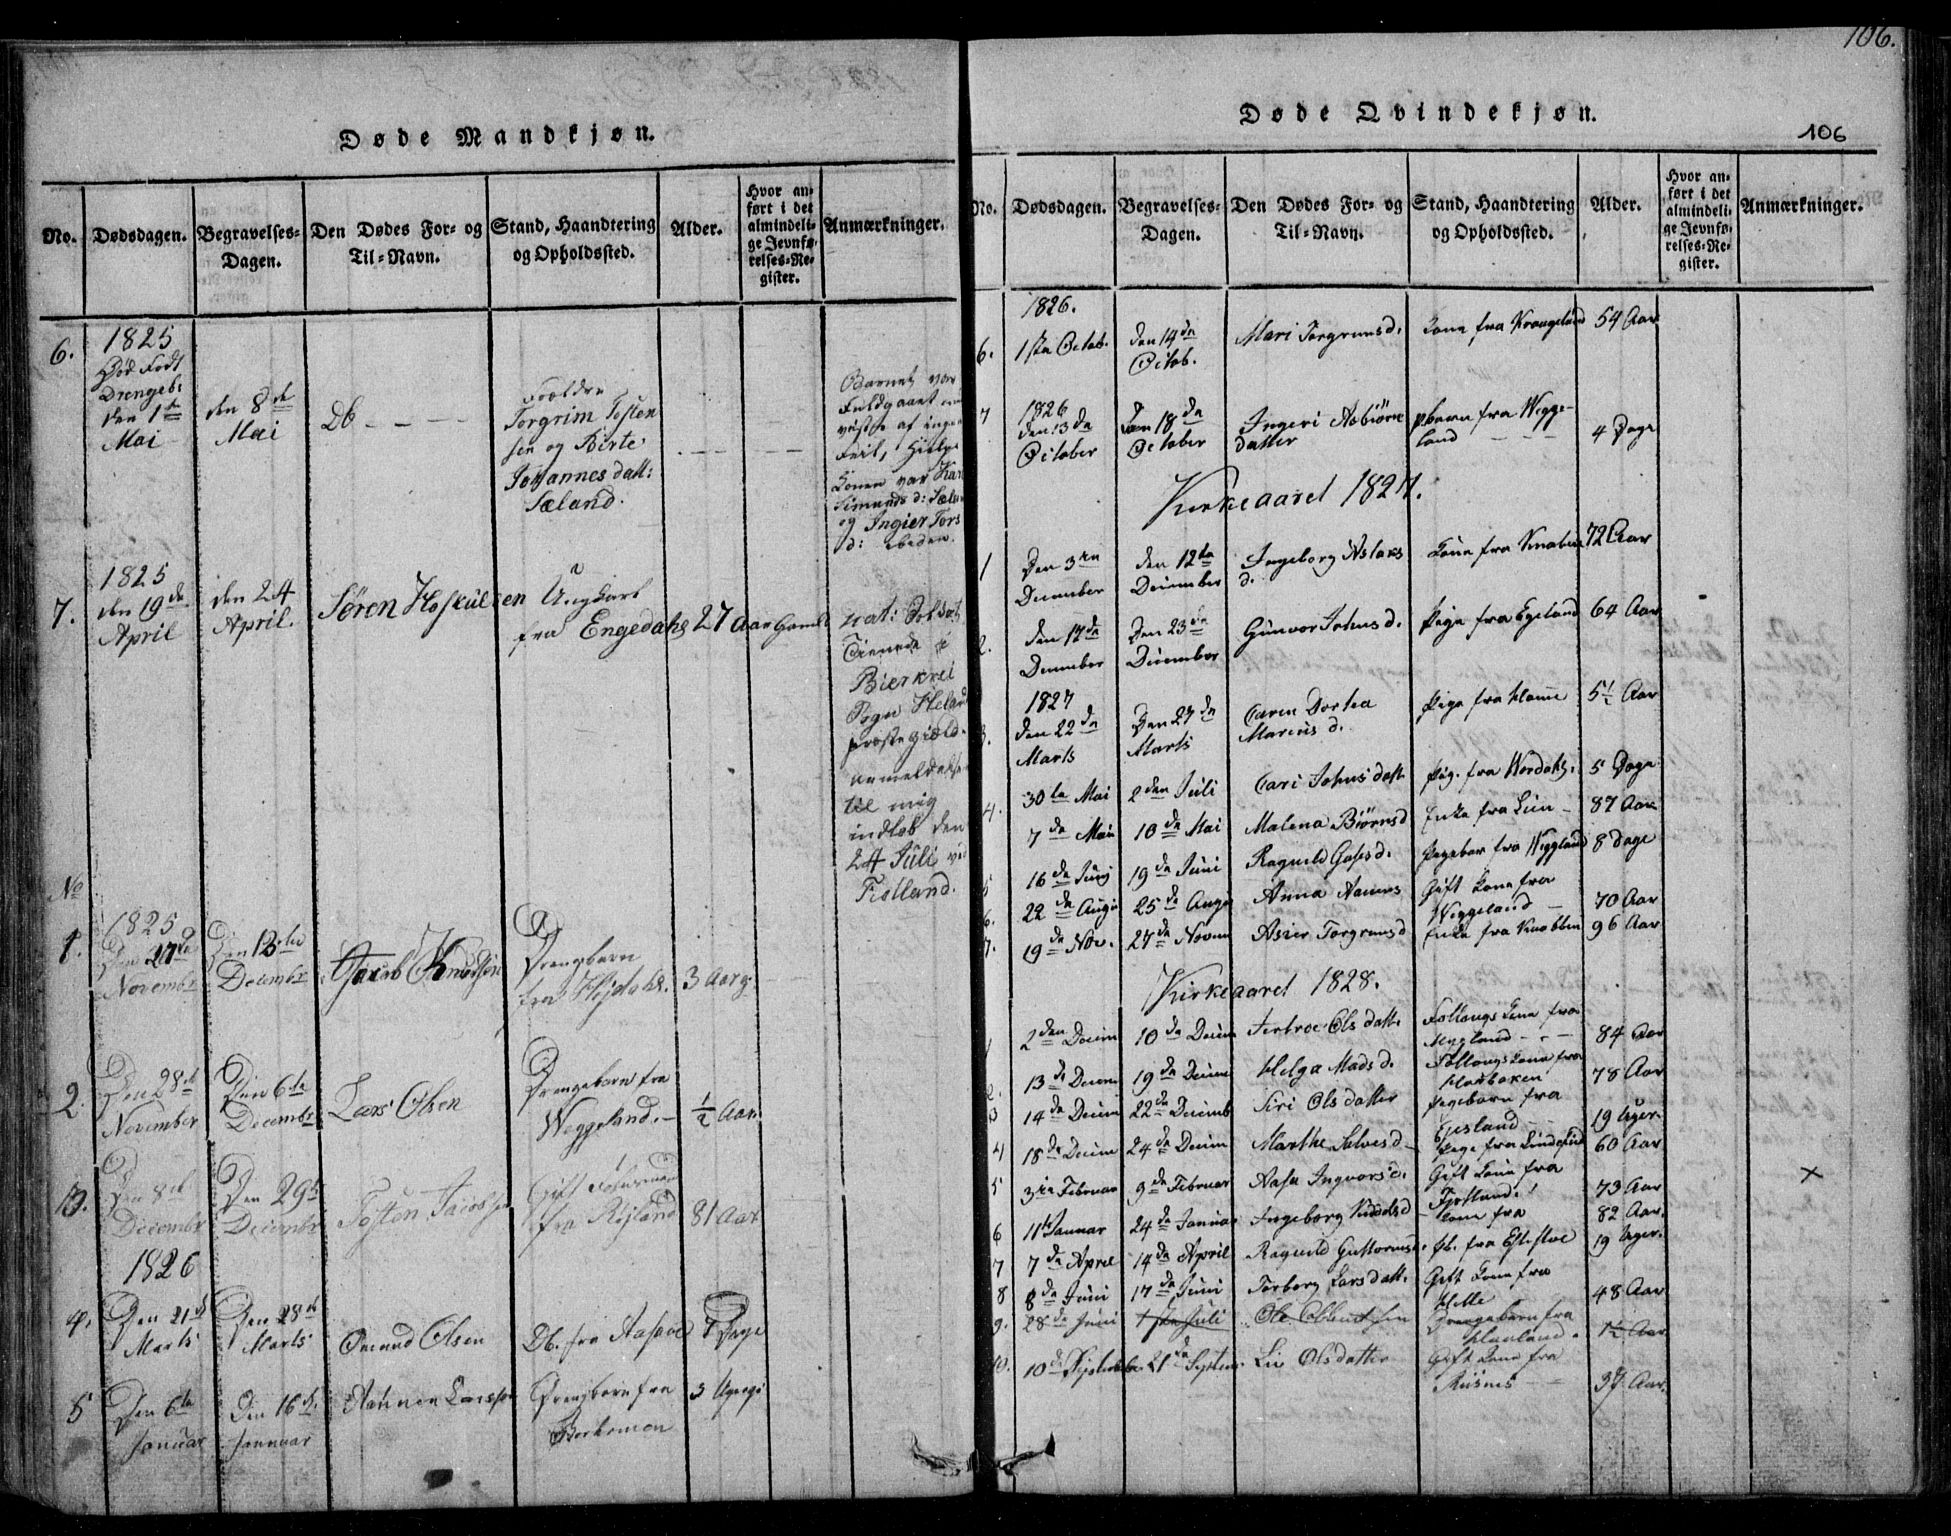 106.
Døde Mandkjøn.
No.
Dødsdagen.
Begravelses-
Dagen.
Den Dødes For- og
Til-Navn.
Stand, Haandtering
og Opholdssted.
Alder.
Hvor an-
ført i det
almindeli-
ge Jevnfø-
relses-Re-
gister.
Anmærkninger.
6.
1825
Død Født
Drengeb:
den 1te
Mai
den 8de
Mai
Db
Forældre
Torgrim Tosten
sen og Birte
Johannes datt:
Sæland.
Barnet var
Fuldgaaet
vidste af ingen
Feil, Hielpe
Konen var Kari
Simunds d: Sæland
og Ingier Tors
d: ibidem.
7.
1825
den 19de
April
den 24
April.
Søren Hoskulsen
Ungkarl
fra Engedahl
27 Aar Gaml
nat: Soldat
Tienede i
Bierkrei
Sogn Heland
præstegield.
anmeldelse
til mig
indløb den
24 Juli ved
Fiolland.
No
1.
1825
Den 27de
Novembr
Den 13de
Decembr
Jacob Knudsen
Drengebarn
fra Højdahl.
3 Aar g.
2.
Den 28de
November
Den 6te
Decembr
Lars Olsen
Drengebarn fra
Weggeland.
1/2 Aar.
3.
Den 8de
Decembr
Den 29de
Decembr
Tosten Jacobsen
Gift Huusmand
fra Rijland
81 Aar
1826
4.
Den 21de
Marts
Den 28de
Marts
Omund Olsen
Db. fra Aasvoe
Dage
5
Den 6te
Januar
Den 16de
Januar
Aanon Larssen
Drengebarn fra
3 Uger g:
Døde Qvindekjøn.
106
No.
Dødsdagen.
Begravelses-
Dagen.
Den Dødes For- og
Til-Navn.
Stand, Haandtering
og Opholdssted.
Alder.
Hvor an-
ført i det
almindeli-
ge Jevnfø-
relses-Re-
gister.
Anmærkninger.
6.
1826.
1ste Octob.
den 14de
Octob.
Mari Torgrimsd.
Kone fra Krogeland
54 Aar
7
1826
den 13de
October
den 18de
October
Ingeri Asbiørns
datter
Pbarn fra Wigge-
land
4 Dage
Kirkeaaret 1827.
1
Den 3die
December
den 12te
December
Ingeborg Aslaks
d.
Kone fra Knaben
72 Aar
2.
den 17de
December
Den 23de
December
Gunvor Johns d.
Pige fra Egeland
64 Aar
3.
1827
den 22de
Marts
Den 27de
Marts
Caren Dorthea
Marcus d.
Pige fra Hamre
5 1/2 Aar
4.
30te Mai
2den Juli
Cari Johns datt.
Pig. fra Wordahl.
5 Dage
7de Mai
10de Mai
Malena Biørnsd
Enke fra Lun
87 Aar
5
16de Junj
19de Juni
Ragnild Gofis d.
Pigebar fra Wiggland
8 Dage
6.
22de Augu
25de Augu
Anna Aanens
Gift Kone fra
Weggeland
70 Aar
7.
19de Nov.
27de Novem
Asier Torgrimsd
Enke fra Knabben
96 Aar
Kirkeaaret 1828.
1
2den Decem
10de Decem
Ols datt.
Follaugs Kone fra
Mygland
84 Aar
2.
13de Decem
19de Decem
Helga Mads d.
Follougs Kone fra
Haabakken
78 Aar
3
14de Decem
22de Decemb
Siri Ols datter
Pigebarn fra
Egesland
19 Uger.
4
18de Decem
24de Decem
Marthe Salves d
Pige fra
60 Aar
5
3die Februar
9de Februar
Aasa Ingvors d.
Gift Kone fra
Fjotland.
73 Aar
×
6
11te Januar
24de Januar
Ingeborg Knuds d
Kone fra
82 Aar.
7
7de April
14de April
Ragnild Guttormsd.
Pb. fra Efestøl
19 Uger.
8
8de Juni
17de Juni
Torborg Lars datt.
Gift Kone fra
Hille
48 Aar
9.
28de Juni
1ste Juli
Ole
Drengebarn fra
Haaland.
1 1/2 Aar
10.
10de September
21de Septem.
Liv Olsdatter
Gift Kone fra
Risnes
37 Aar.